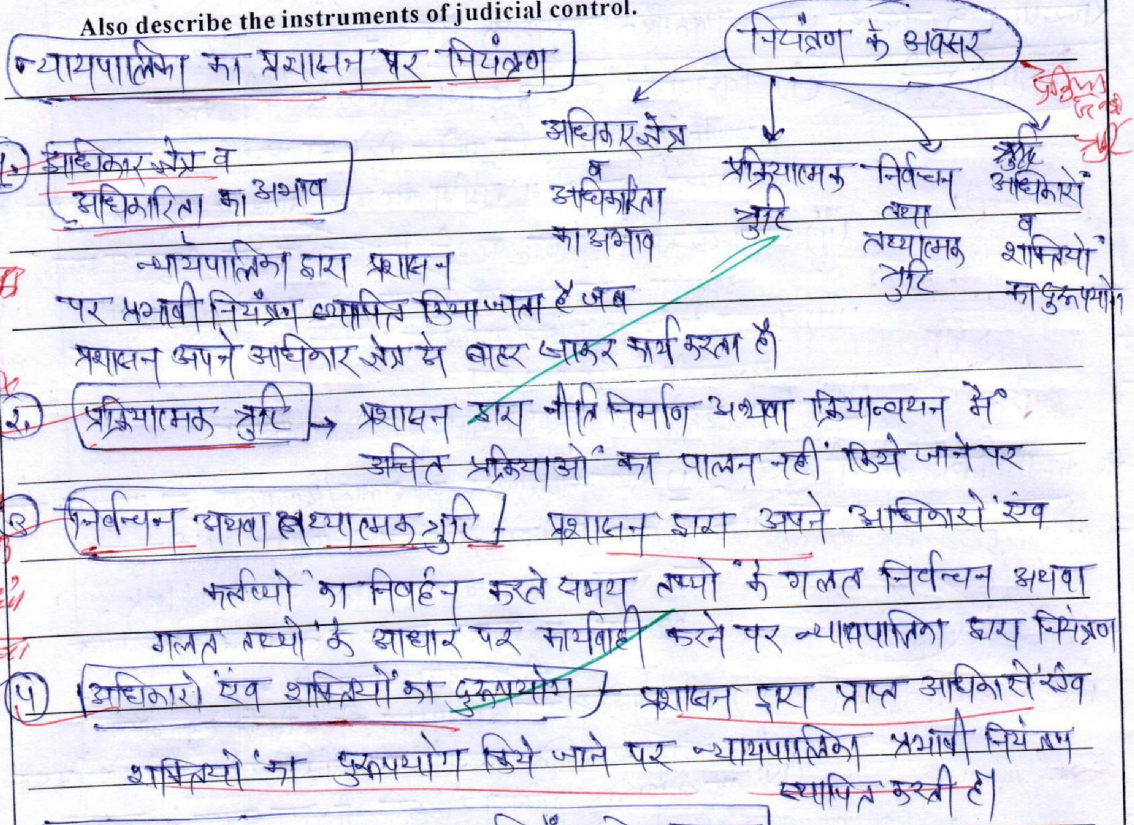 Also describe the instruments of judicial control.
न्यायपालिका का प्रशासन पर नियंत्रण
नियंत्रण के अवसर
अधिकार क्षेत्र
व
अधिकारिता
का अभाव
प्रक्रियात्मक
त्रुटि
निर्वचन
तथा
तथ्यात्मक
त्रुटि
अधिकारों
व
शक्तियों
का दुरूपयोग
1. अधिकार क्षेत्र व
अधिकारिता का अभाव
न्यायपालिका द्वारा प्रशासन
पर प्रभावी नियंत्रण स्थापित किया जाता है जब
प्रशासन अपने अधिकार क्षेत्र से बाहर जाकर कार्य करता है।
2. प्रक्रियात्मक त्रुटि → प्रशासन द्वारा नीति निर्माण अथवा क्रियान्वयन में
उचित प्रक्रियाओं का पालन नहीं किये जाने पर
3 निर्वचन अथवा तथ्यात्मक त्रुटि - प्रशासन द्वारा अपने अधिकारों एंव
कर्तव्यों का निर्वहन करते समय तथ्यों के गलत निर्वचन अथवा
गलत तथ्यों के आधार पर कार्यवाही करने पर न्यायपालिका द्वारा नियंत्रण
4 अधिकारों एंव शक्तियों का दुरूपयोग - प्रशासन द्वारा प्राप्त अधिकारों एंव
शक्तियों का दुरूपयोग किये जाने पर न्यायपालिका प्रभावी नियंत्रण
स्थापित करती है।